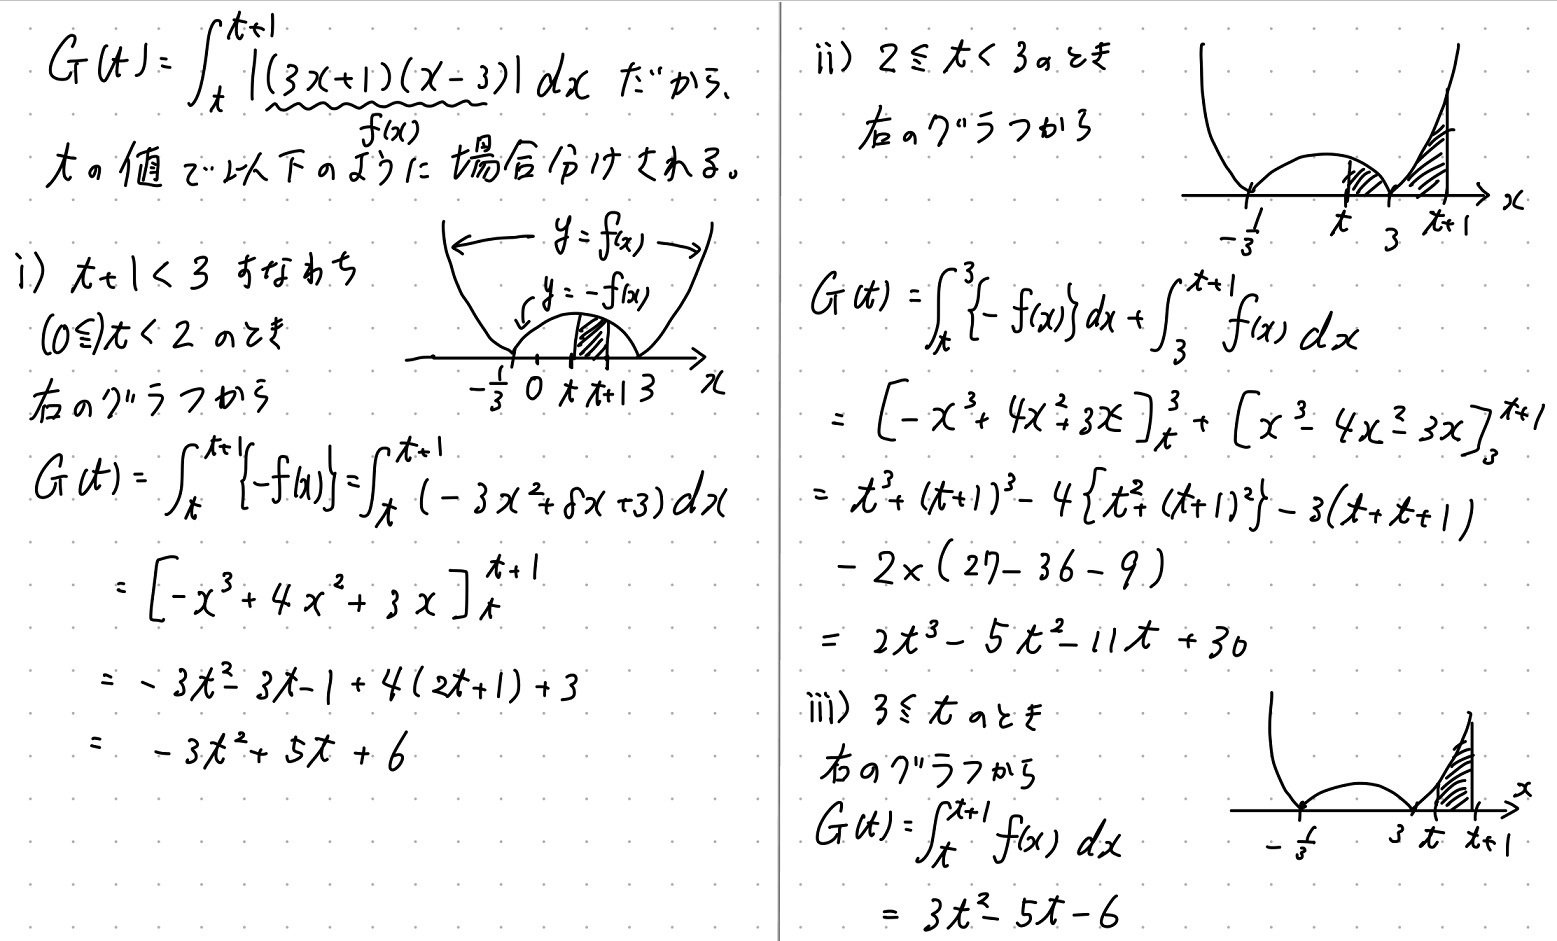 G(t) = ∫_t^{t+1} |(3x+1)(x-3)| dx だから、
f(x)
tの値で以下のように場合分けされる。
i) t+1 < 3 すなわち
(0≦)t < 2 のとき
右のグラフから
y = f(x)
y = -f(x)
-1/3 0 t t+1 3 x
G(t) = ∫_t^{t+1} {-f(x)} = ∫_t^{t+1} (-3x²+8x+3) dx
= [-x³+4x²+3x]_t^{t+1}
= -3t²-3t-1+4(2t+1)+3
= -3t²+5t+6
ii) 2 ≦ t < 3 のとき
右のグラフから
-1/3 t 3 t+1 x
G(t) = ∫_t^3 {-f(x)} dx + ∫_3^{t+1} f(x) dx
= [-x³+4x²+3x]_t^3 + [x³-4x²-3x]_3^{t+1}
= t³+(t+1)³-4{t²+(t+1)²}-3(t+t+1)
-2×(27-36-9)
= 2t³-5t²-11t+30
iii) 3 ≦ t のとき
右のグラフから
-1/3 3 t t+1 x
G(t) = ∫_t^{t+1} f(x) dx
= 3t²-5t-6